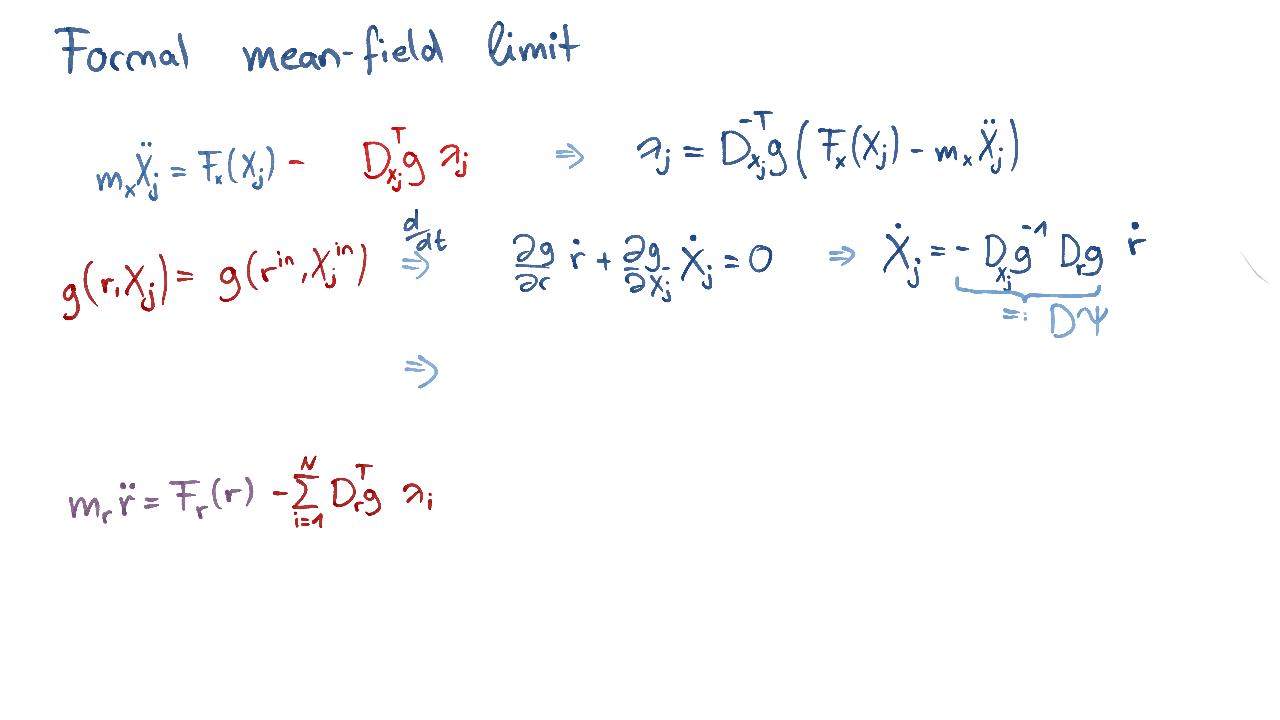 Formal mean-field limit
m_x Ẍ_j = F_x(X_j) - D_{x_j}^T g λ_j ⇒ λ_j = D_{x_j}^{-T} g ( F_x(X_j) - m_x Ẍ_j )
g(r, X_j) = g(r^{in}, X_j^{in}) d/dt ⇒ ∂g/∂r ṙ + ∂g/∂X_j Ẋ_j = 0 ⇒ Ẋ_j = - D_{x_j} g^{-1} D_r g ṙ
=: DΨ
⇒
m_r r̈ = F_r(r) - ∑_{i=1}^N D_r^T g λ_i